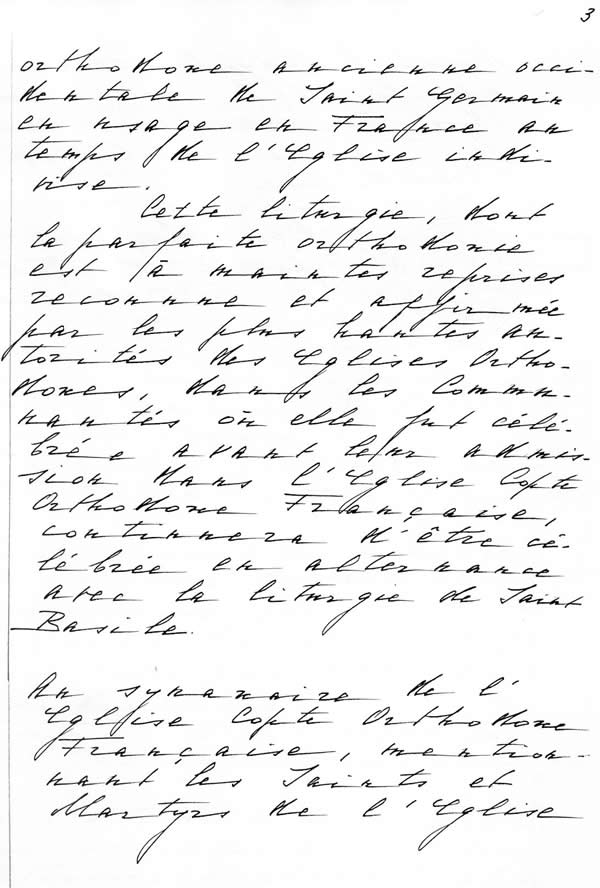 3
orthodoxe ancienne occi-
dentale de Saint Germain
en usage en France au
temps de l'Eglise indi-
vise.
Cette liturgie, dont
la parfaite orthodoxie
est à maintes reprises
reconnue et affirmée
par les plus hautes au-
torités des Eglises Ortho-
doxes, dans les Commu-
nautés où elle fut célé-
brée avant leur admis-
sion dans l'Eglise Copte
Orthodoxe Française,
continuera d'être cé-
lébrée en alternance
avec la liturgie de Saint
Basile.
Au synaxaire de l'
Eglise Copte Orthodoxe
Française, mention-
nant les Saints et
Martyrs de l'Eglise